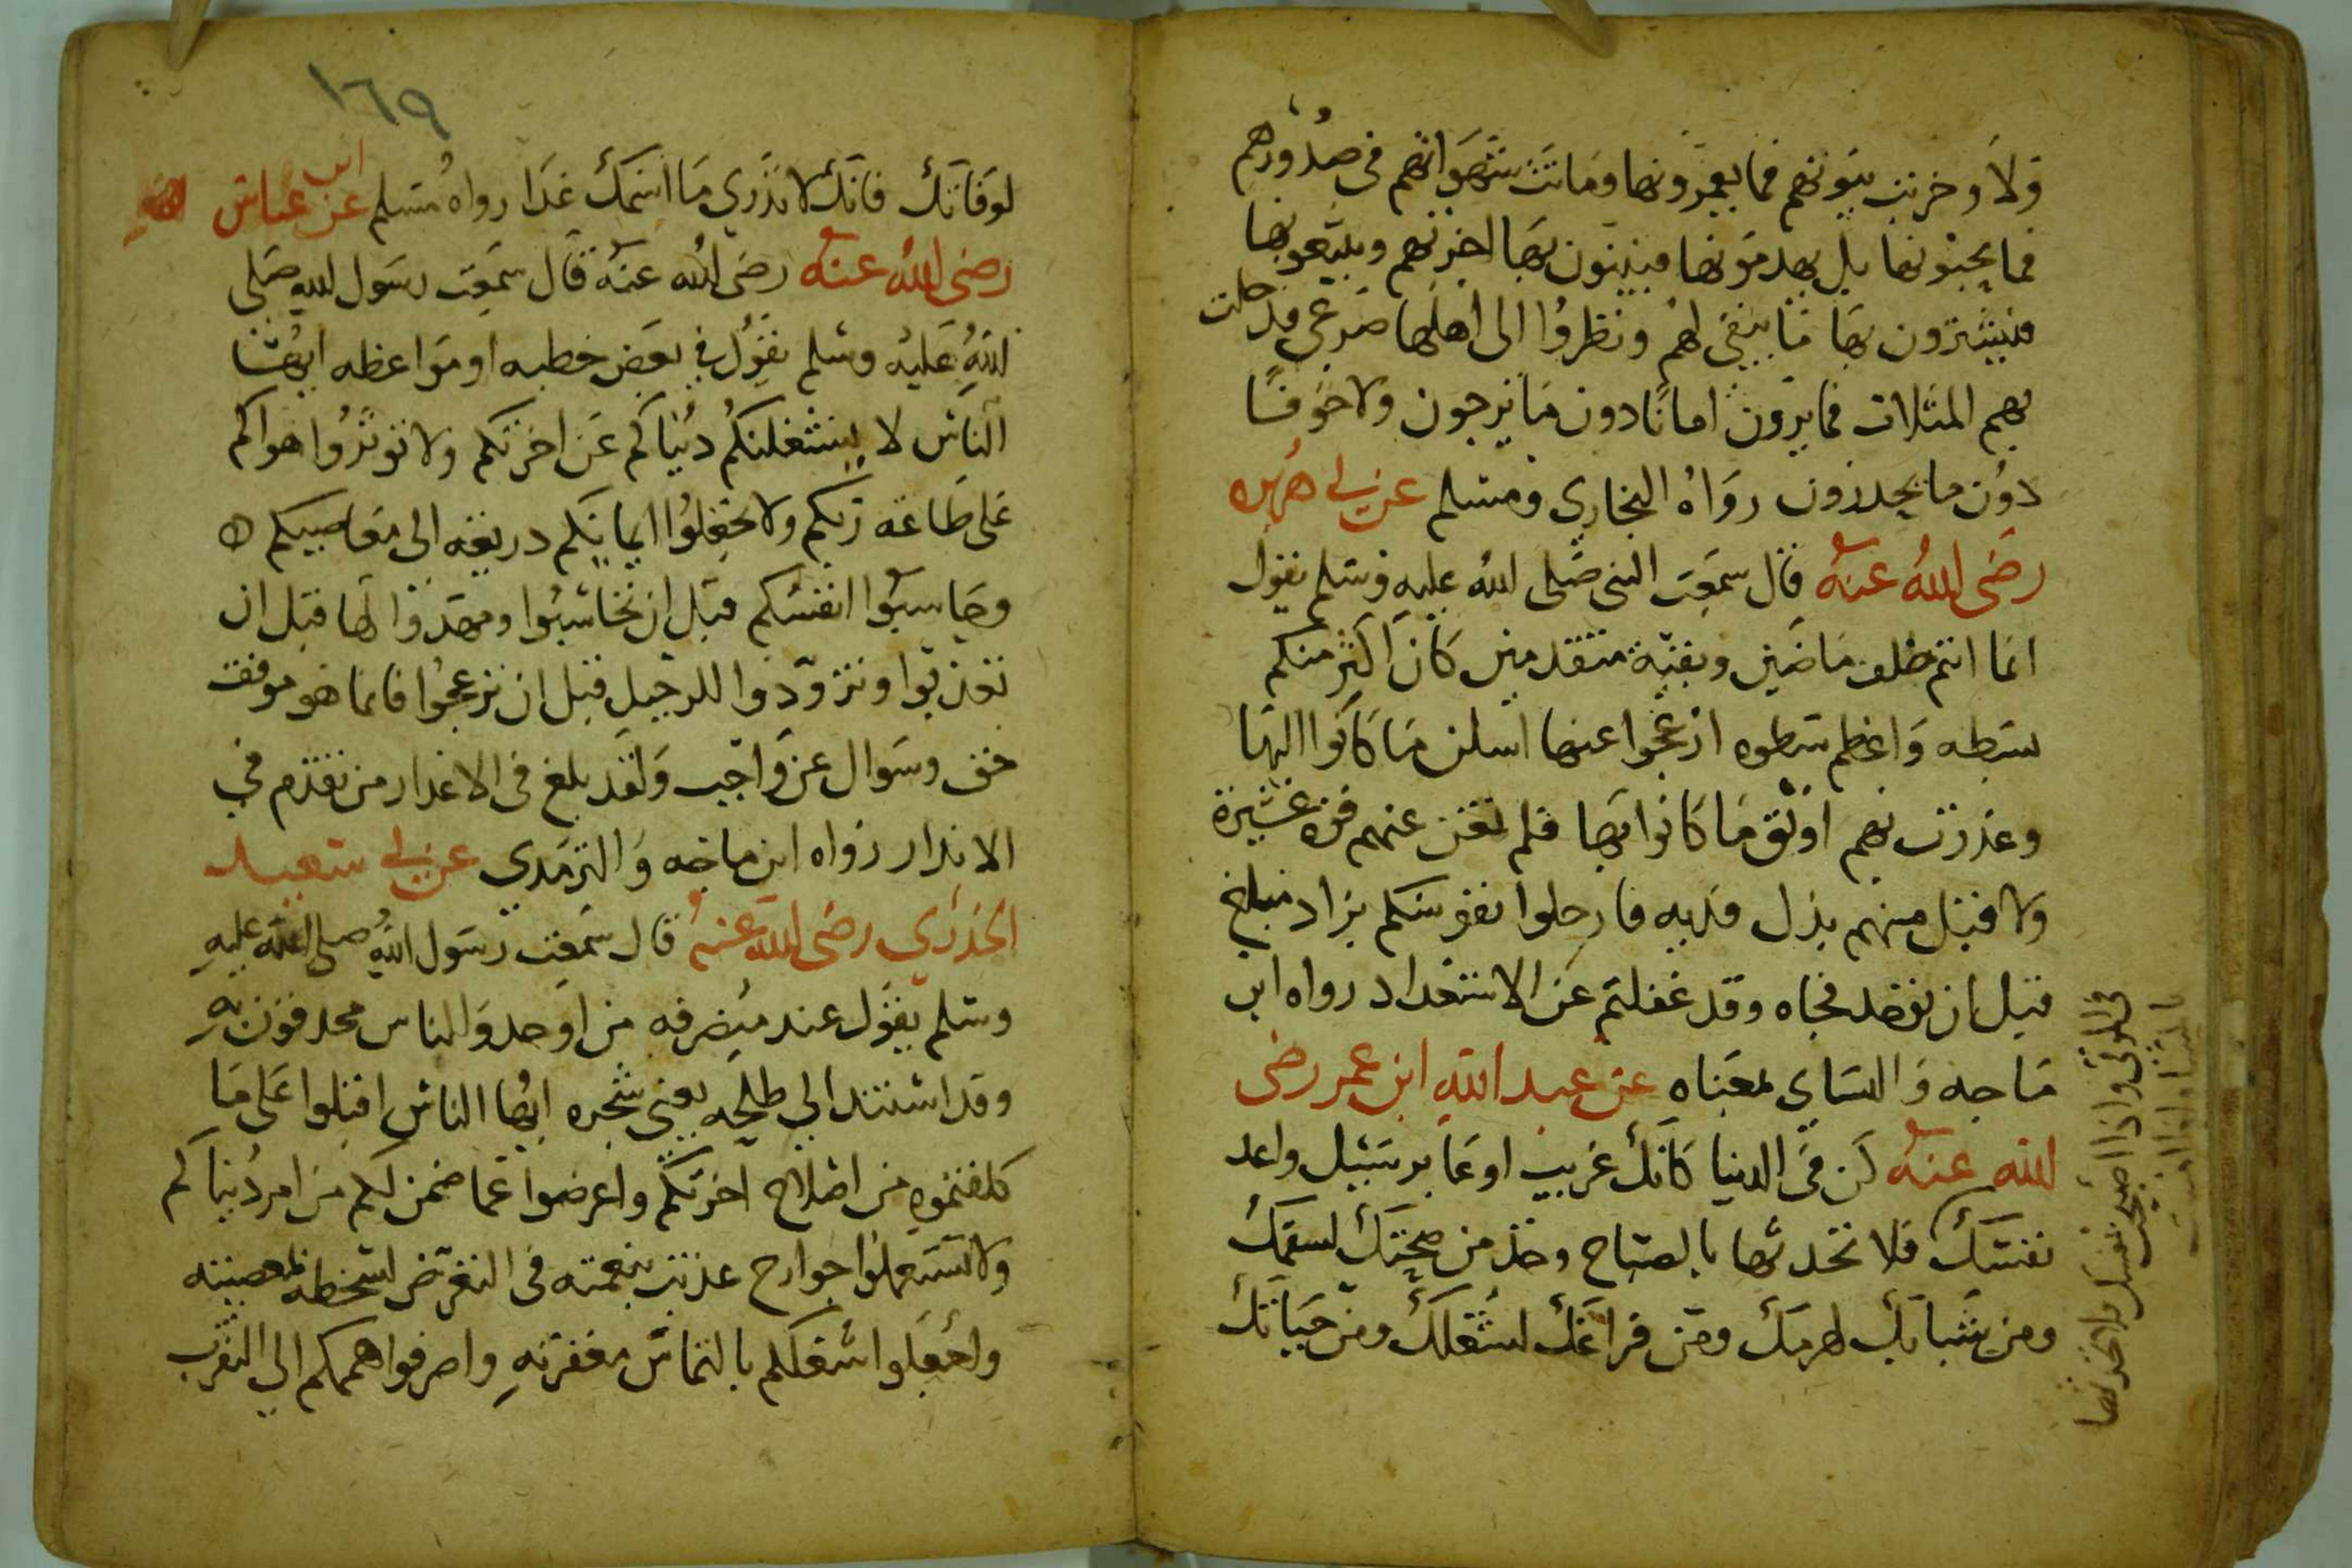 قولا وخربت بيوتهم فما يعمرونها وماتت شهواتهم في صدورهم
فما يحيونها بل يهدمونها فيبنون بها اخرتهم ويبيعونها
فيشترون بها ما يبقى لهم ونظروا الى اهلها صرعى قد حلت
بهم المثلات فما يرون امانا دون ما يرجون ولا خوفا
دون ما يحذرون رواه البخاري ومسلم عن ابي هريره
رضى الله عنه قال سمعت النبي صلى الله عليه وسلم يقول
انما انتم خلف ماضين وبقية متقدمين كان اكثر منكم
بسطه واعظم سطوه ازعجوا عنها اسكن ما كانوا اليها
وغدرت بهم اوثق ما كانوا بها فلم تغن عنهم قوة عشيرة
ولا قبل منهم بذل فديه فارحلوا نفوسكم بزاد مبلغ
قبل ان توخذ فجاه وقد غفلتم عن الاستعداد رواه ابن
ماجه والنساي بمعناه عن عبد الله ابن عمر رضى
الله عنه كن في الدنيا كانك غريب او عابر سبيل واعد
نفسك فلا تحدثها بالصباح وخذ من صحتك لسقمك
ومن شبابك لهرمك ومن فراغك لشغلك ومن حياتك
في الموتى واذا اصبحت نفسك فلا تحدثها
بالمسا واذا امسيت
١٦٩
لوفاتك فانك لا تدري ما اسمك غدا رواه مسلم عن ابن عباس
رضى الله عنه رضى الله عنه قال سمعت رسول الله صلى
الله عليه وسلم يقول في بعض خطبه او مواعظه ايها
الناس لا يشغلنكم دنياكم عن اخرتكم ولا توثروا هواكم
على طاعة ربكم ولا تجعلوا ايمانكم دريعه الى معاصيكم ه
وحاسبوا انفسكم قبل ان تحاسبوا ومهدوا لها قبل ان
تعذبوا وتزودوا للرحيل قبل ان تزعجوا فانما هو موقف
حق وسوال عن واجب ولقد بلغ في الاعذار من تقدم في
الانذار رواه ابن ماجه والترمدي عن ابي سعيد
الخدري رضى الله عنه قال سمعت رسول الله صلى الله عليه
وسلم يقول عند منصرفه من اوحد والناس محدقون به
وقد استند الى طلحه يعني شجره ايها الناس اقبلوا على ما
كلفتموه من اصلاح اخرتكم واعرضوا عما ضمن لكم من امر دنياكم
ولا تستعملوا جوارح غذيت بنعمته في التعرض لسخطه بمعصيته
واجعلوا شغلكم بالتماس مغفرته واصرفوا هممكم الى التقرب